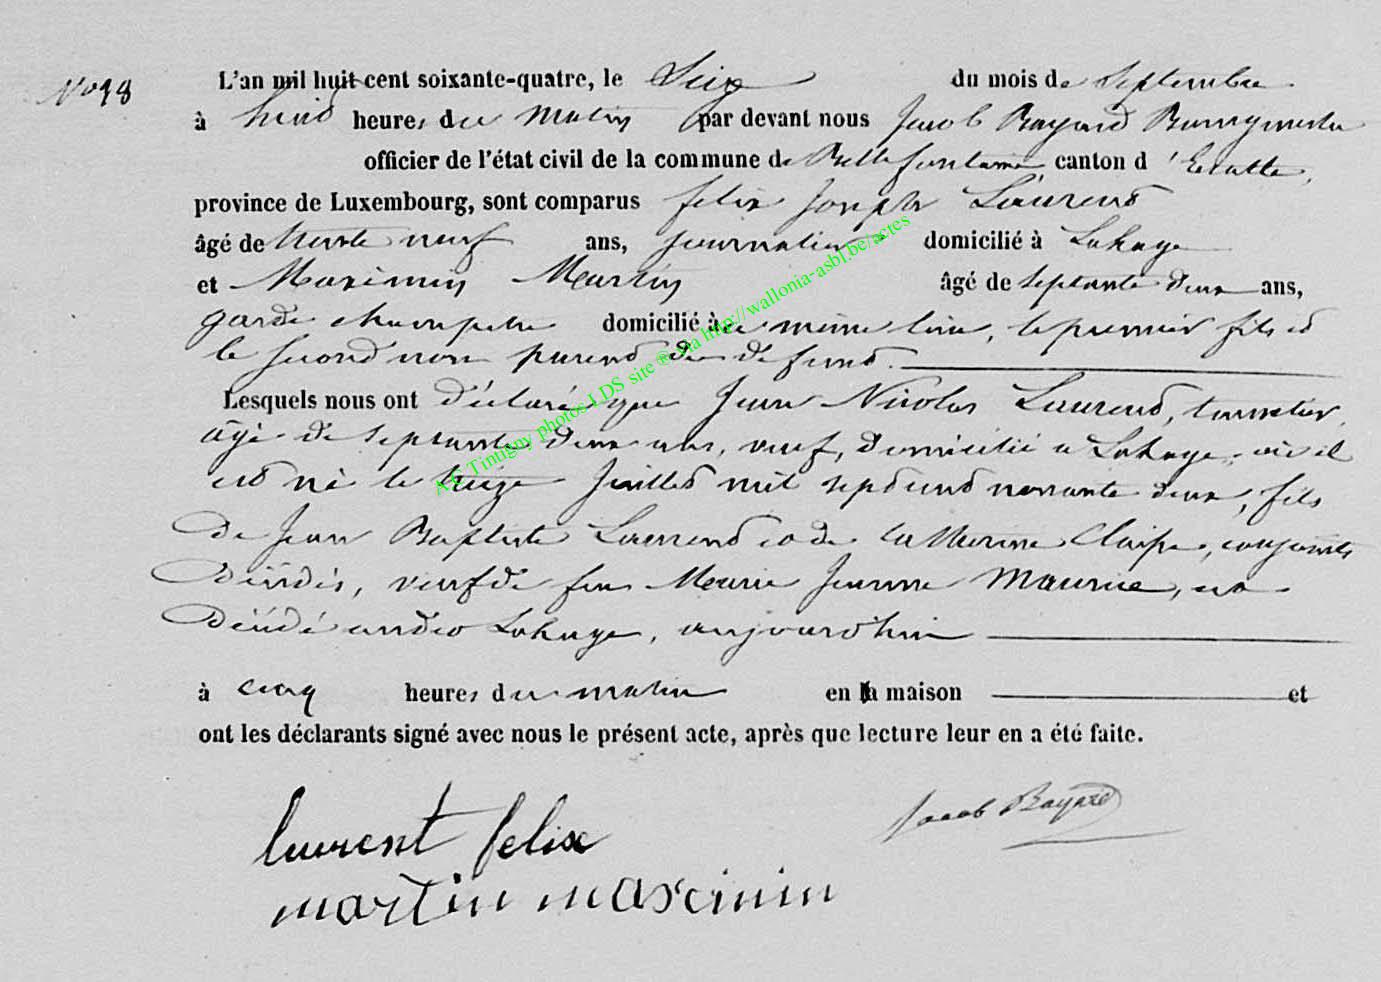 No 18
L'an mil huit cent soixante-quatre, le Seize du mois de Septembre
à huit heures du Matin par devant nous Jacob Bayard Bourgmestre
officier de l'état civil de la commune de Bellefontaine canton d'Etalle,
province de Luxembourg, sont comparus felix Joseph Laurent
âgé de trente neuf ans, journalier domicilié à Lahage
et Maximin Martin âgé de septante deux ans,
garde champetre domicilié à ce même lieu, le premier fils et
le second non parent du défunt.
Lesquels nous ont déclaré que Jean Nicolas Laurent,
âgé de septante deux ans, veuf, domicilié a Lahage, où il
est né le treize Juillet mil sept cent nonante deux, fils
de Jean Baptiste Laurent et de Catherine Claisse, conjoints
décédés, veuf de feu Marie Jeanne Maurice, est
décédé audit Lahage, aujourd'hui
à cinq heures du matin en la maison et
ont les déclarants signé avec nous le présent acte, après que lecture leur en a été faite.
laurent felix
Jacob Bayard
martin maximin
A.C Tintigny photos LDS site ® via http://wallonia-asbl.be/actes